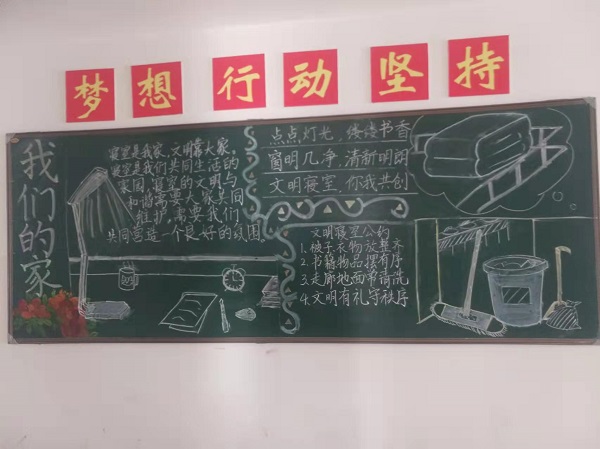 梦想 行动 坚持
我们的家
寝室是我家,文明靠大家。
寝室是我们共同生活的
家园,寝室的文明与
和谐需要大家共同
维护,需要我们
共同营造一个良好的氛围。
点点灯光,缕缕书香
窗明几净,清新明朗
文明寝室,你我共创
文明寝室公约
1.被子衣物放整齐
2.书籍物品摆有序
3.走廊地面常清洗
4.文明有礼守秩序